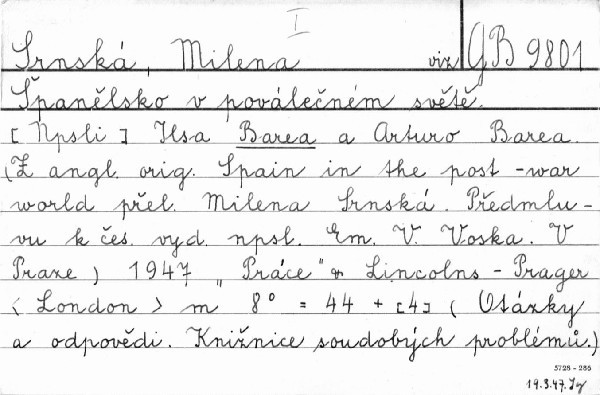 I
Srnská, Milena viz GB 9801
Španělsko v poválečném světě.
[Npsli] Ilsa Barea a Arturo Barea.
(Z angl. orig. Spain in the post-war
world přel. Milena Srnská. Předmlu-
vu k čes. vyd. npsl. Em. V. Voska. V
Praze) 1947 „Práce" & Lincolns-Prager
<London> m 8° = 44 + [4] (Otázky
a odpovědi. Knižnice soudobých problémů.)
5725-285
19.3.47.